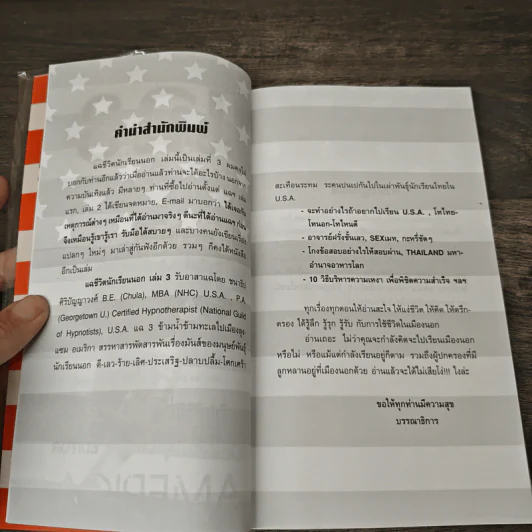 คำนำสำนักพิมพ์
แฉชีวิตนักเรียนนอก เล่มนี้เป็นเล่มที่ 3 ผมคง
บอกกับท่านอีกแล้วว่าเมื่ออ่านแล้วท่านจะได้อะไรบ้าง นอกจาก
ความบันเทิงแล้ว มีหลายๆ ท่านที่ซื้อไปอ่านตั้งแต่ แฉฯ เล่ม
แรก, เล่ม 2 ได้เขียนจดหมาย, E-mail มาบอกว่า ได้เจอกับ
เหตุการณ์ต่างๆ เหมือนที่ได้อ่านมาจริงๆ ดีนะที่ได้อ่านแฉฯ ก่อน
จึงเหมือนรู้เขารู้เรา รับมือได้สบายๆ และบางคนยังเขียนเรื่อง
แปลกๆ ใหม่ๆ มาเล่าสู่กันฟังอีกด้วย รวมๆ ก็คงได้หนังสือ
อีกเป็นเล่ม
แฉชีวิตนักเรียนนอก เล่ม 3 รับอาสาแฉโดย ชนาธิป
ศิริปัญญาวงศ์ B.E. (Chula), MBA (NHC) U.S.A. , P.A.
(Georgetown U.) Certified Hypnotherapist (National Guild
of Hypnotists), U.S.A. แฉ 3 ข้ามน้ำข้ามทะเลไปเมืองลุง
แซม อเมริกา สรรหาสารพัดสารพันเรื่องมันส์ของมนุษย์พันธุ์
นักเรียนนอก ดี-เลว-ร้าย-เลิศ-ประเสริฐ-ปลาบปลื้ม-โศกเศร้า
สะเทือนระทม ระคนปนเปกันไปในเผ่าพันธุ์นักเรียนไทยใน
U.S.A.
- จะทำอย่างไรถ้าอยากไปเรียน U.S.A. , โทไทย-
โทนอก-โทไหนดี
- อาจารย์ฝรั่งชั้นเลว, SEXเมท, กะหรี่ชัดๆ
- โกงข้อสอบอย่างไรให้สอบผ่าน, THAILAND มหา-
อำนาจอาหารโลก
- 10 วิธีบริหารความเหงา เพื่อพิชิตความสำเร็จ ฯลฯ
ทุกเรื่องทุกตอนให้อ่านสะใจ ให้แง่ชีวิต ให้คิด ให้ตรึก-
ตรอง ได้รู้ลึก รู้รุก รู้รับ กับการใช้ชีวิตในเมืองนอก
อ่านเถอะ ไม่ว่าคุณจะกำลังคิดจะไปเรียนเมืองนอก
หรือไม่ หรือแม้แต่กำลังเรียนอยู่ก็ตาม รวมถึงผู้ปกครองที่มี
ลูกหลานอยู่ที่เมืองนอกด้วย อ่านแล้วจะได้ไม่เสียโง่!!! ไงล่ะ
ขอให้ทุกท่านมีความสุข
บรรณาธิการ